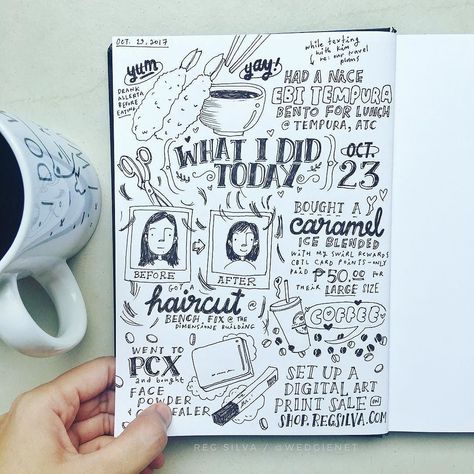 OCT. 23, 2017
while texting
with Kim
re: our travel
plans
yum
yay!
DRANK
ALLERTA
BEFORE
EATING
HAD A NICE
EBI TEMPURA
BENTO FOR LUNCH
@ TEMPURA, ATC
WHAT I DID
TODAY
OCT.
23
BEFORE
AFTER
BOUGHT A
caramel
ICE BLENDED
WITH MY SWIRL REWARDS
CBTL CARD POINTS - ONLY
PAID ₱50.00 FOR
THEIR LARGE SIZE
GOT A
haircut @
BENCH, FIX @ THE
DIMENSIONE BUILDING
COFFEE
WENT TO
PCX
and bought
FACE
POWDER
SET UP A
DIGITAL ART
PRINT SALE IN
SHOP.REGSILVA.COM
REG SILVA / @WEDGIENET